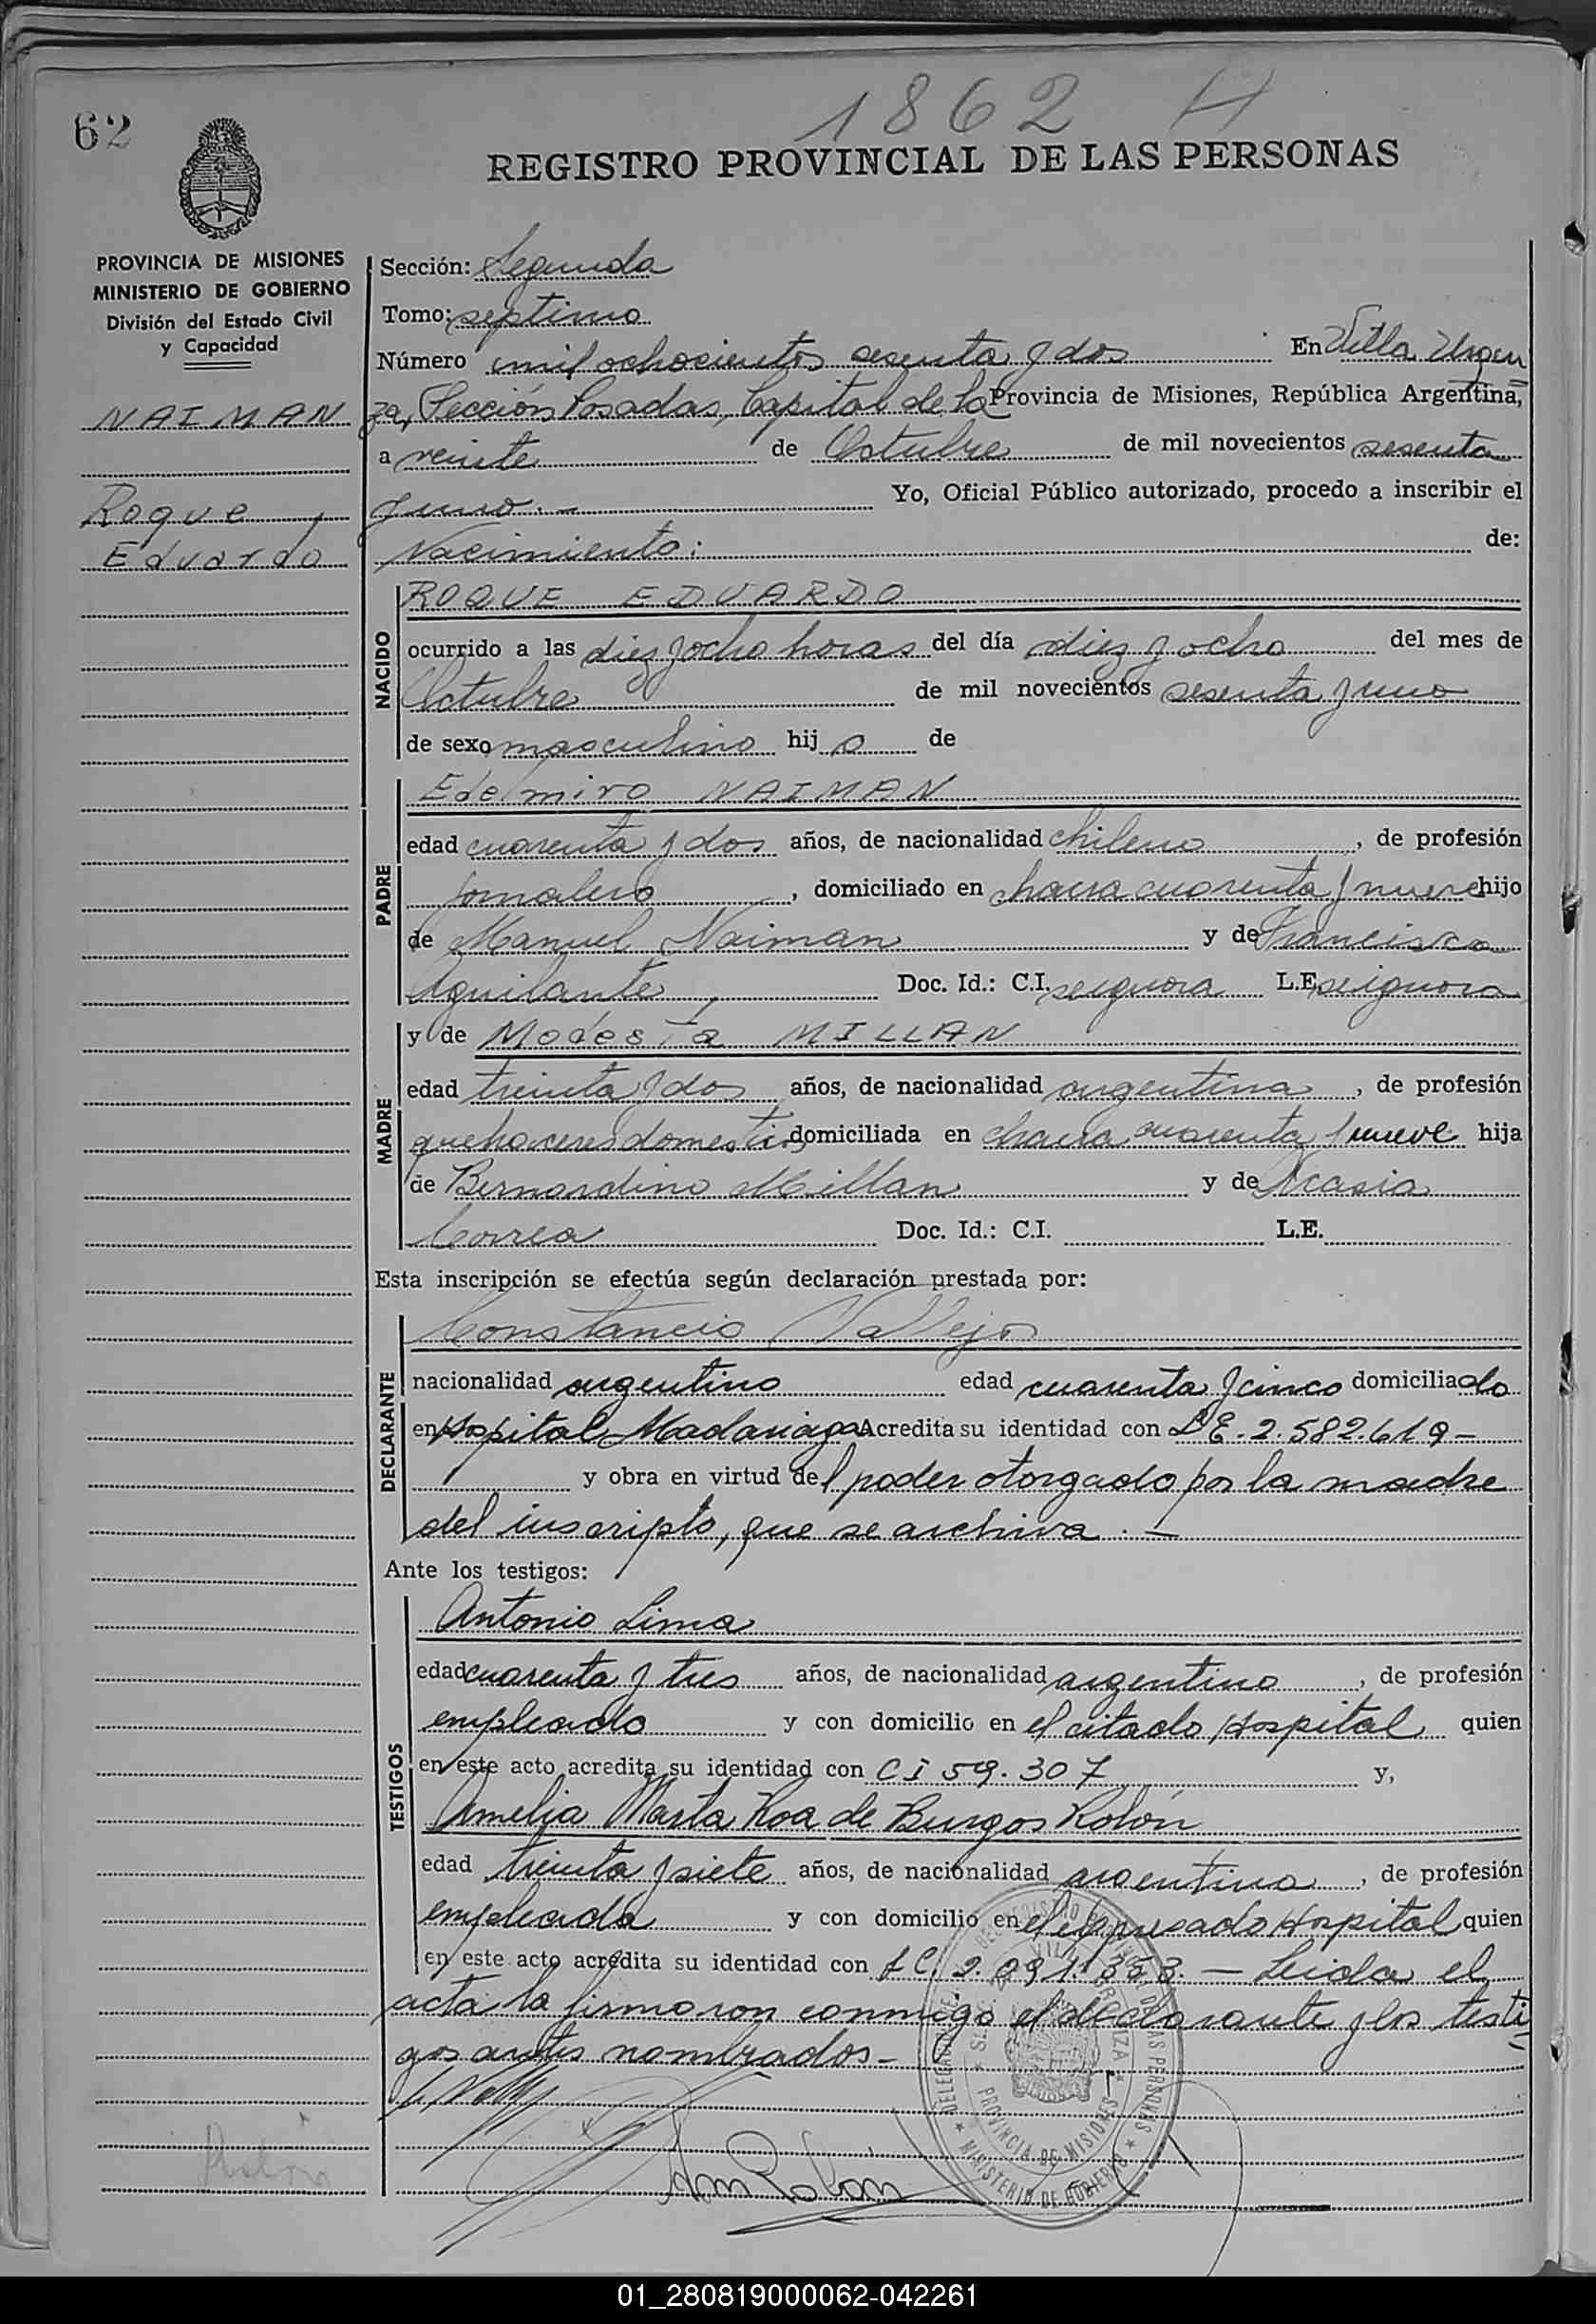 1862 H
62
REGISTRO PROVINCIAL DE LAS PERSONAS
PROVINCIA DE MISIONES
MINISTERIO DE GOBIERNO
División del Estado Civil
y Capacidad
NAIMAN
Roque
Eduardo
Sección: Segunda
Tomo: septimo
Número mil ochocientos sesenta y dos En Villa Urqui
za, Sección Posadas, Capital de la Provincia de Misiones, República Argentina,
a veinte de Octubre de mil novecientos sesenta
y uno.- Yo, Oficial Público autorizado, procedo a inscribir el
Nacimiento: de:
NACIDO
ROQUE EDUARDO
ocurrido a las diez y ocho horas del día diez y ocho del mes de
Octubre de mil novecientos sesenta y uno
de sexo masculino hijo de
PADRE
Edelmiro NAIMAN
edad cuarenta y dos años, de nacionalidad chileno, de profesión
jornalero, domiciliado en chacra cuarenta y nueve hijo
de Manuel Naiman y de Francisca
Aguilante Doc. Id.: C.I. se ignora L.E. se ignora
MADRE
y de Modesta MILLAN
edad treinta y dos años, de nacionalidad argentina, de profesión
quehaceres domestic domiciliada en chacra cuarenta y nueve hija
de Bernardino Millan y de Acasia
Correa Doc. Id.: C.I. L.E.
Esta inscripción se efectúa según declaración prestada por:
DECLARANTE
Constancio Vallejos
nacionalidad argentino edad cuarenta y cinco domiciliado
en Hospital Madariaga Acredita su identidad con L.E. 2.582.619-
y obra en virtud del poder otorgado por la madre
del inscripto, que se archiva.-
Ante los testigos:
TESTIGOS
Antonio Lima
edad cuarenta y tres años, de nacionalidad argentino, de profesión
empleado y con domicilio en el citado Hospital quien
en este acto acredita su identidad con CI 59.307 y,
Amelia Marta Roa de Burgos Rolón
edad treinta y siete años, de nacionalidad argentina, de profesión
empleada y con domicilio en el expresado Hospital quien
en este acto acredita su identidad con LC. 2.091.353.- Leida el
acta la firmaron conmigo el declarante y los testi
gos antes nombrados-
PROVINCIA DE MISIONES
MINISTERIO DE GOBIERNO
01_280819000062-042261